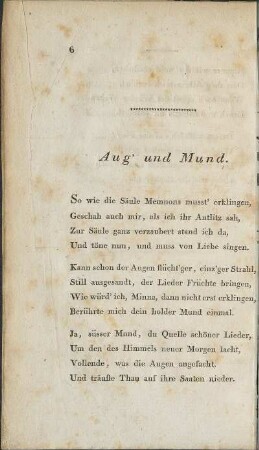 6
Aug' und Mund.
So wie die Säule Memnons musst' erklingen,
Geschah auch mir, als ich ihr Antlitz sah,
Zur Säule ganz verzaubert stand ich da,
Und töne nun, und muss von Liebe singen.
Kann schon der Augen flücht'ger, einz'ger Strahl,
Still ausgesandt, der Lieder Früchte bringen,
Wie würd' ich, Minna, dann nicht erst erklingen,
Berührte mich dein holder Mund einmal.
Ja, süsser Mund, du Quelle schöner Lieder,
Um den des Himmels neuer Morgen lacht,
Vollende, was die Augen angefacht,
Und träufle Thau auf ihre Saaten nieder.